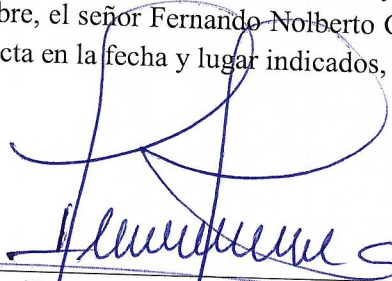 bre, el señor Fernando Nolberto
cta en la fecha y lugar indicados,